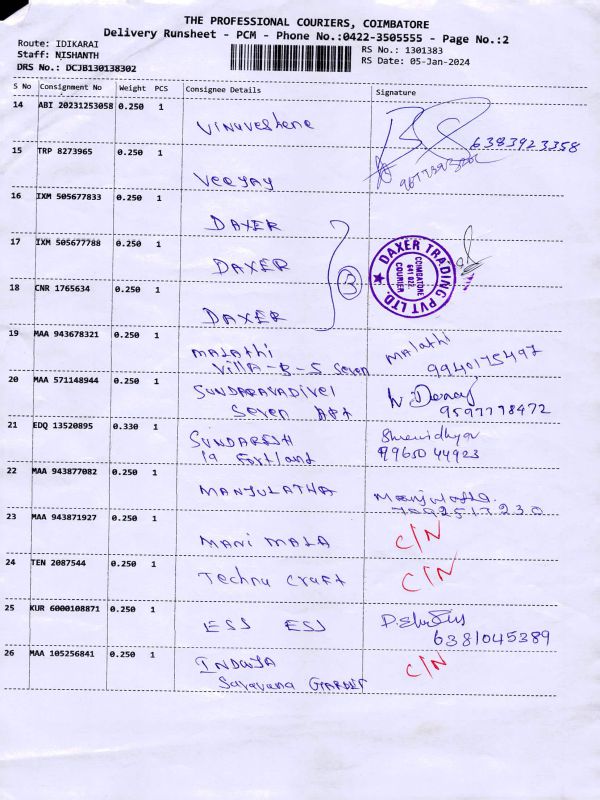 THE PROFESSIONAL COURIERS, COIMBATORE
Delivery Runsheet - PCM - Phone No.:0422-3505555 - Page No.:2
Route: IDIKARAI
RS No.: 1301383
Staff: NISHANTH
RS Date: 05-Jan-2024
DRS No.: DCJB130138302
S No Consignment No Weight PCS Consignee Details Signature
14 ABI 20231253058 0.250 1
Vinuveshene
6383923358
15 TRP 8273965 0.250 1
Veejay
16 IXM 505677833 0.250 1
DAXER
17 IXM 505677788 0.250 1
DAXER
3
DAXER TRADING PVT LTD.
COIMBATORE
641 022.
COURIER
18 CNR 1765634 0.250 1
DAXER
19 MAA 943678321 0.250 1
Malathi
Villa-B-5 Seven
Malathi
9940175497
20 MAA 571148944 0.250 1
SUNDARAVADIVEl
Seven APt
9597778472
21 EDQ 13520895 0.330 1
SUNDARESH
19 Fortland
Shrividhya
9965044923
22 MAA 943877082 0.250 1
MANJULATHA
Manjulatha.
7092517230
23 MAA 943871927 0.250 1
MANI MALA
C/N
24 TEN 2087544 0.250 1
Techno Craft
C/N
25 KUR 6000108871 0.250 1
ESS ESS
6381045389
26 MAA 105256841 0.250 1
INDUJA
Saravana GARDEN
C/N